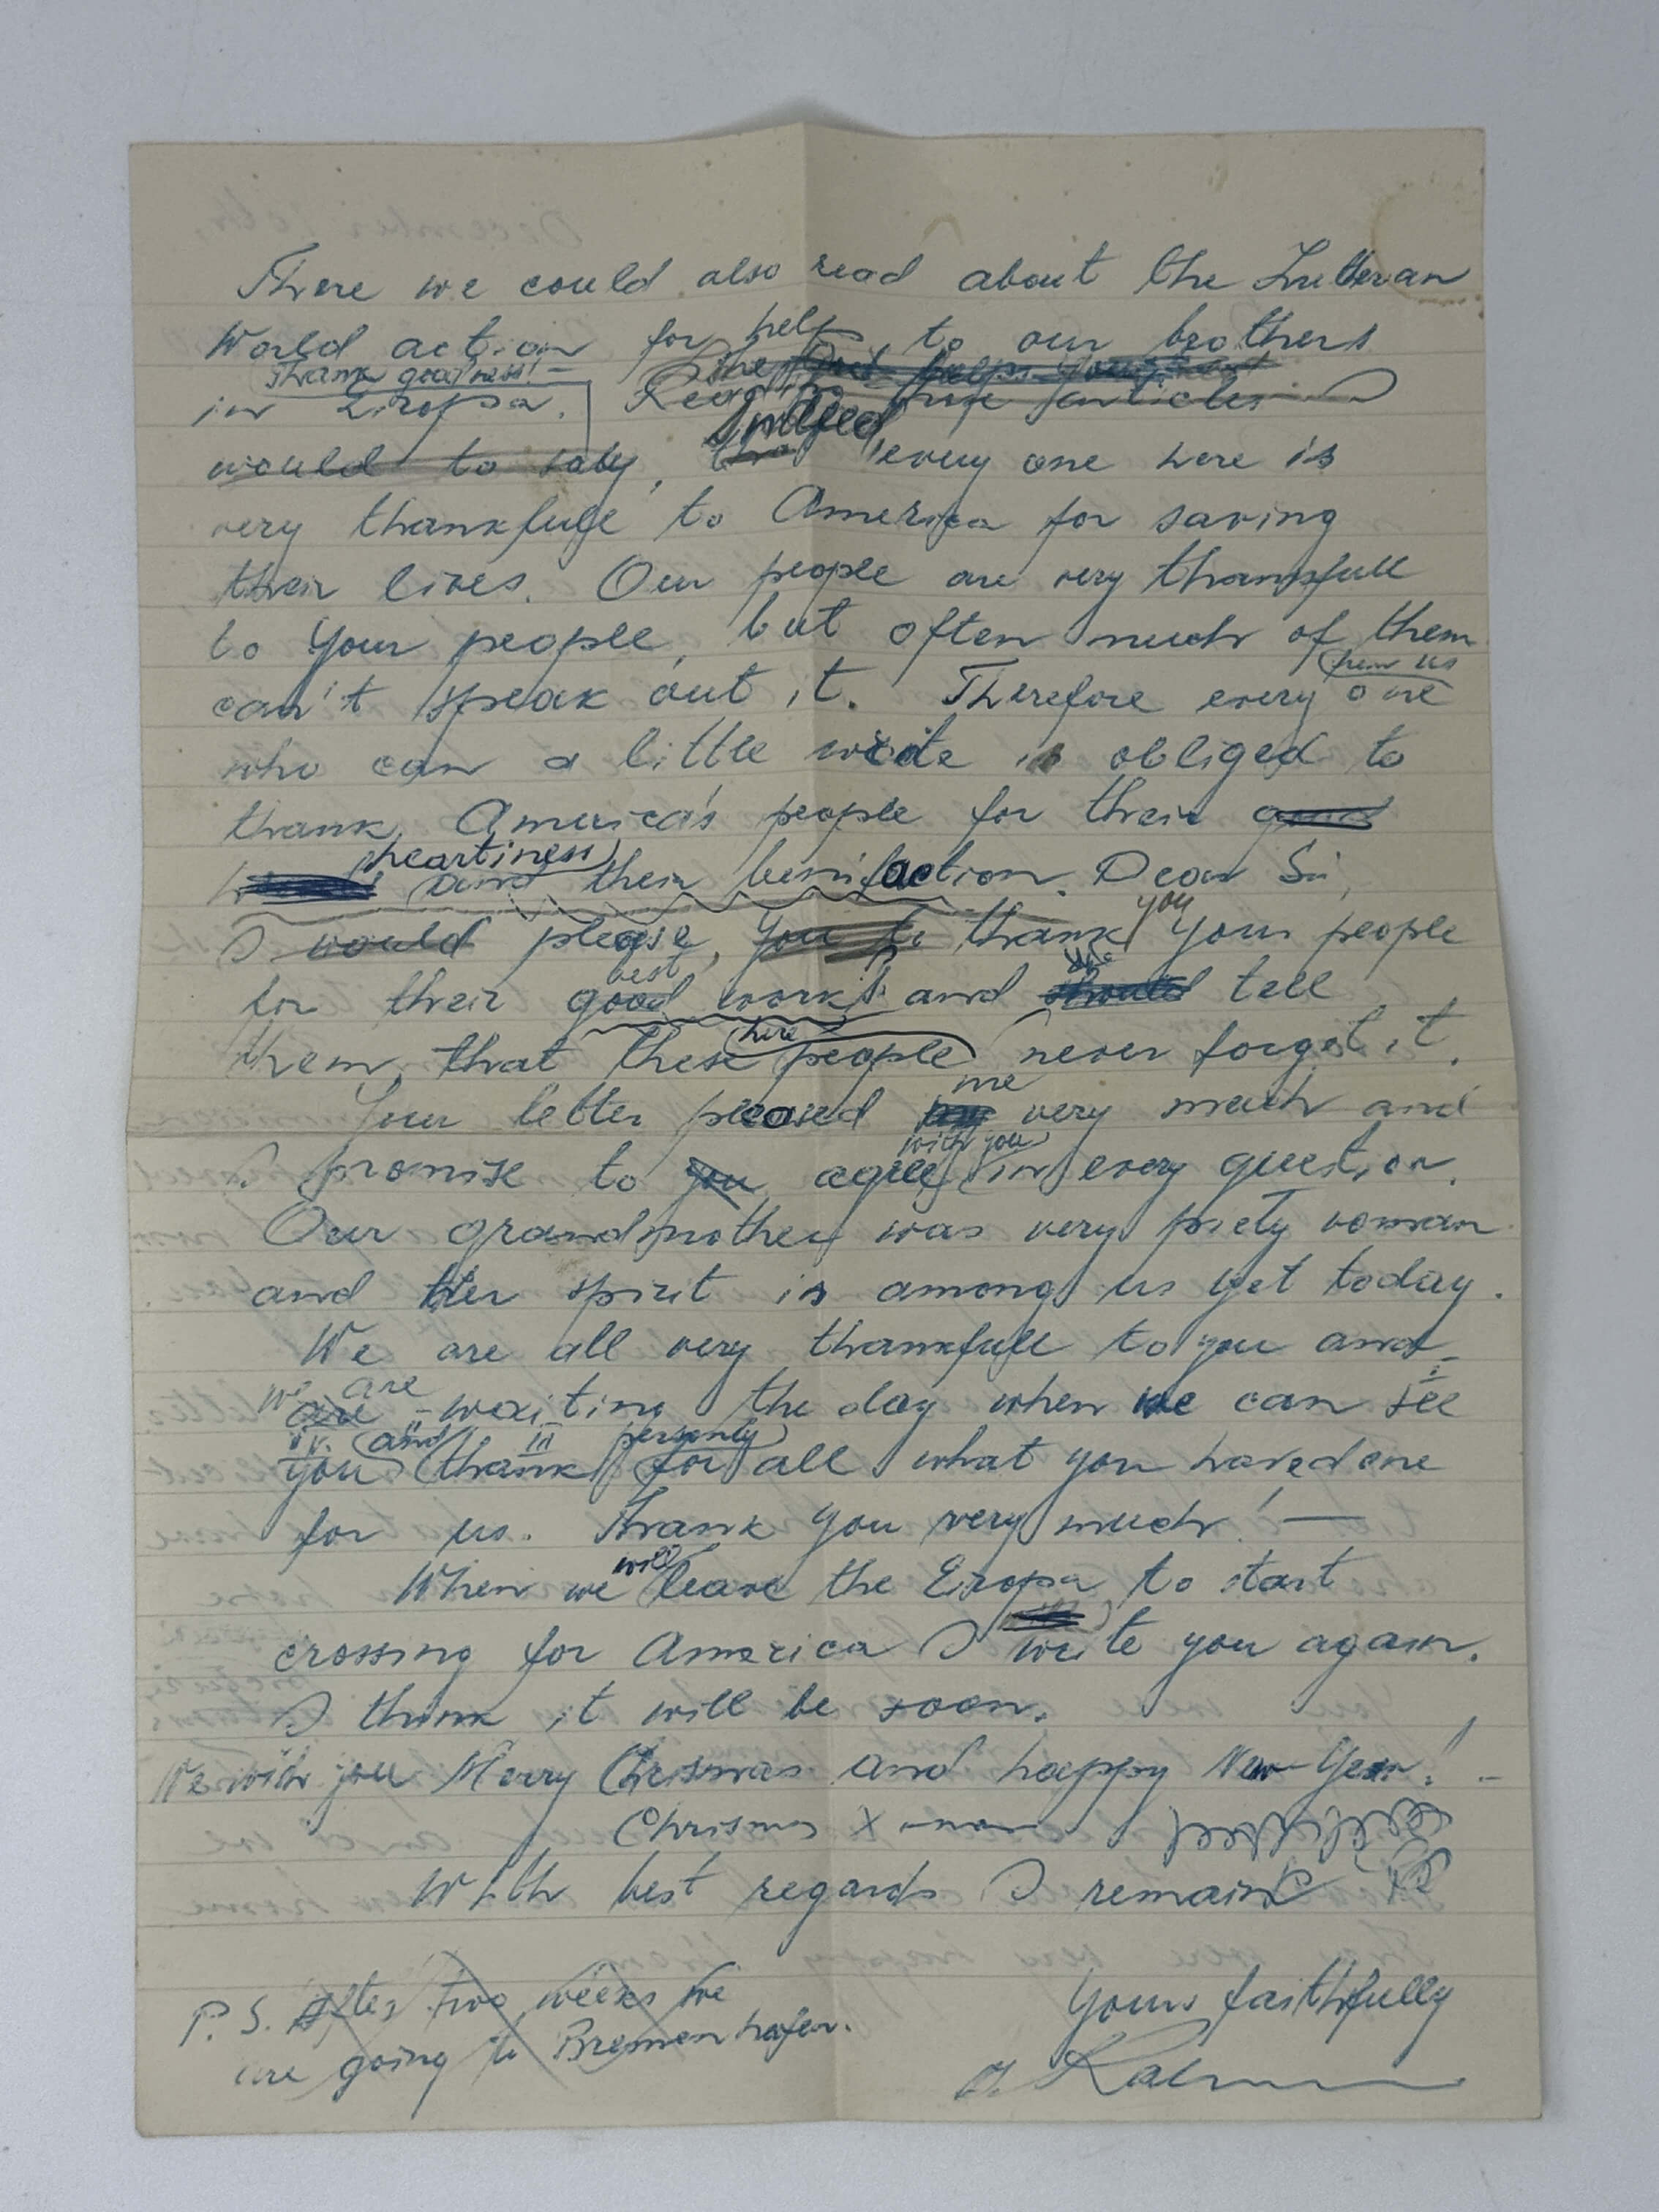 There we could also read about the Lutheran
World action for help to our brothers
Thank goodness! –
in Eiropa. Reading
would to say, Indeed every one here is
very thankfull to America for saving
their lives. Our people are very thankfull
to your people, but often much of them
from us
can't speak out it. Therefore every one
who can a little write is obliged to
thank America's people for their good
heartiness
and their benifaction. Dear Sir,
you
I would please, you to thank your people
best
for their good work! and tell
here
them, that these people never forget it.
me
Your letter pleased my very much and
with you
I promise to you agree in every question.
Our grandmother was very piety woman
and Her spirit is among us yet today.
We are all very thankfull to you and
we are
are waiting the day when we can see
and personly
you thank for all what you have done
for us. Thank you very much! —
will
When we leave the Eiropa to start
crossing for America I write you again.
I think it will be soon.
We wish you Merry Chrismas and happy New Year! –
Chrismas X-mas
With best regards I remain
P. S. After two weeks we
are going to Bremenhafen.
Yours faithfully